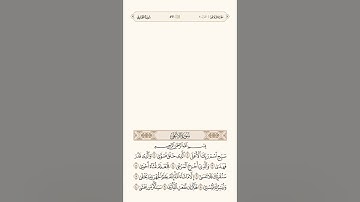 سُورَةُ الأَعْلَى
بِسْمِ اللَّهِ الرَّحْمَٰنِ الرَّحِيمِ
سَبِّحِ اسْمَ رَبِّكَ الْأَعْلَى ١ الَّذِي خَلَقَ فَسَوَّىٰ ٢ وَالَّذِي قَدَّرَ
فَهَدَىٰ ٣ وَالَّذِي أَخْرَجَ الْمَرْعَىٰ ٤ فَجَعَلَهُ غُثَاءً أَحْوَىٰ ٥
سَنُقْرِئُكَ فَلَا تَنسَىٰ ٦ إِلَّا مَا شَاءَ اللَّهُ إِنَّهُ يَعْلَمُ الْجَهْرَ وَمَا يَخْفَىٰ ٧
وَنُيَسِّرُكَ لِلْيُسْرَىٰ ٨ فَذَكِّرْ إِن نَّفَعَتِ الذِّكْرَىٰ ٩ سَيَذَّكَّرُ مَن يَخْشَىٰ ١٠